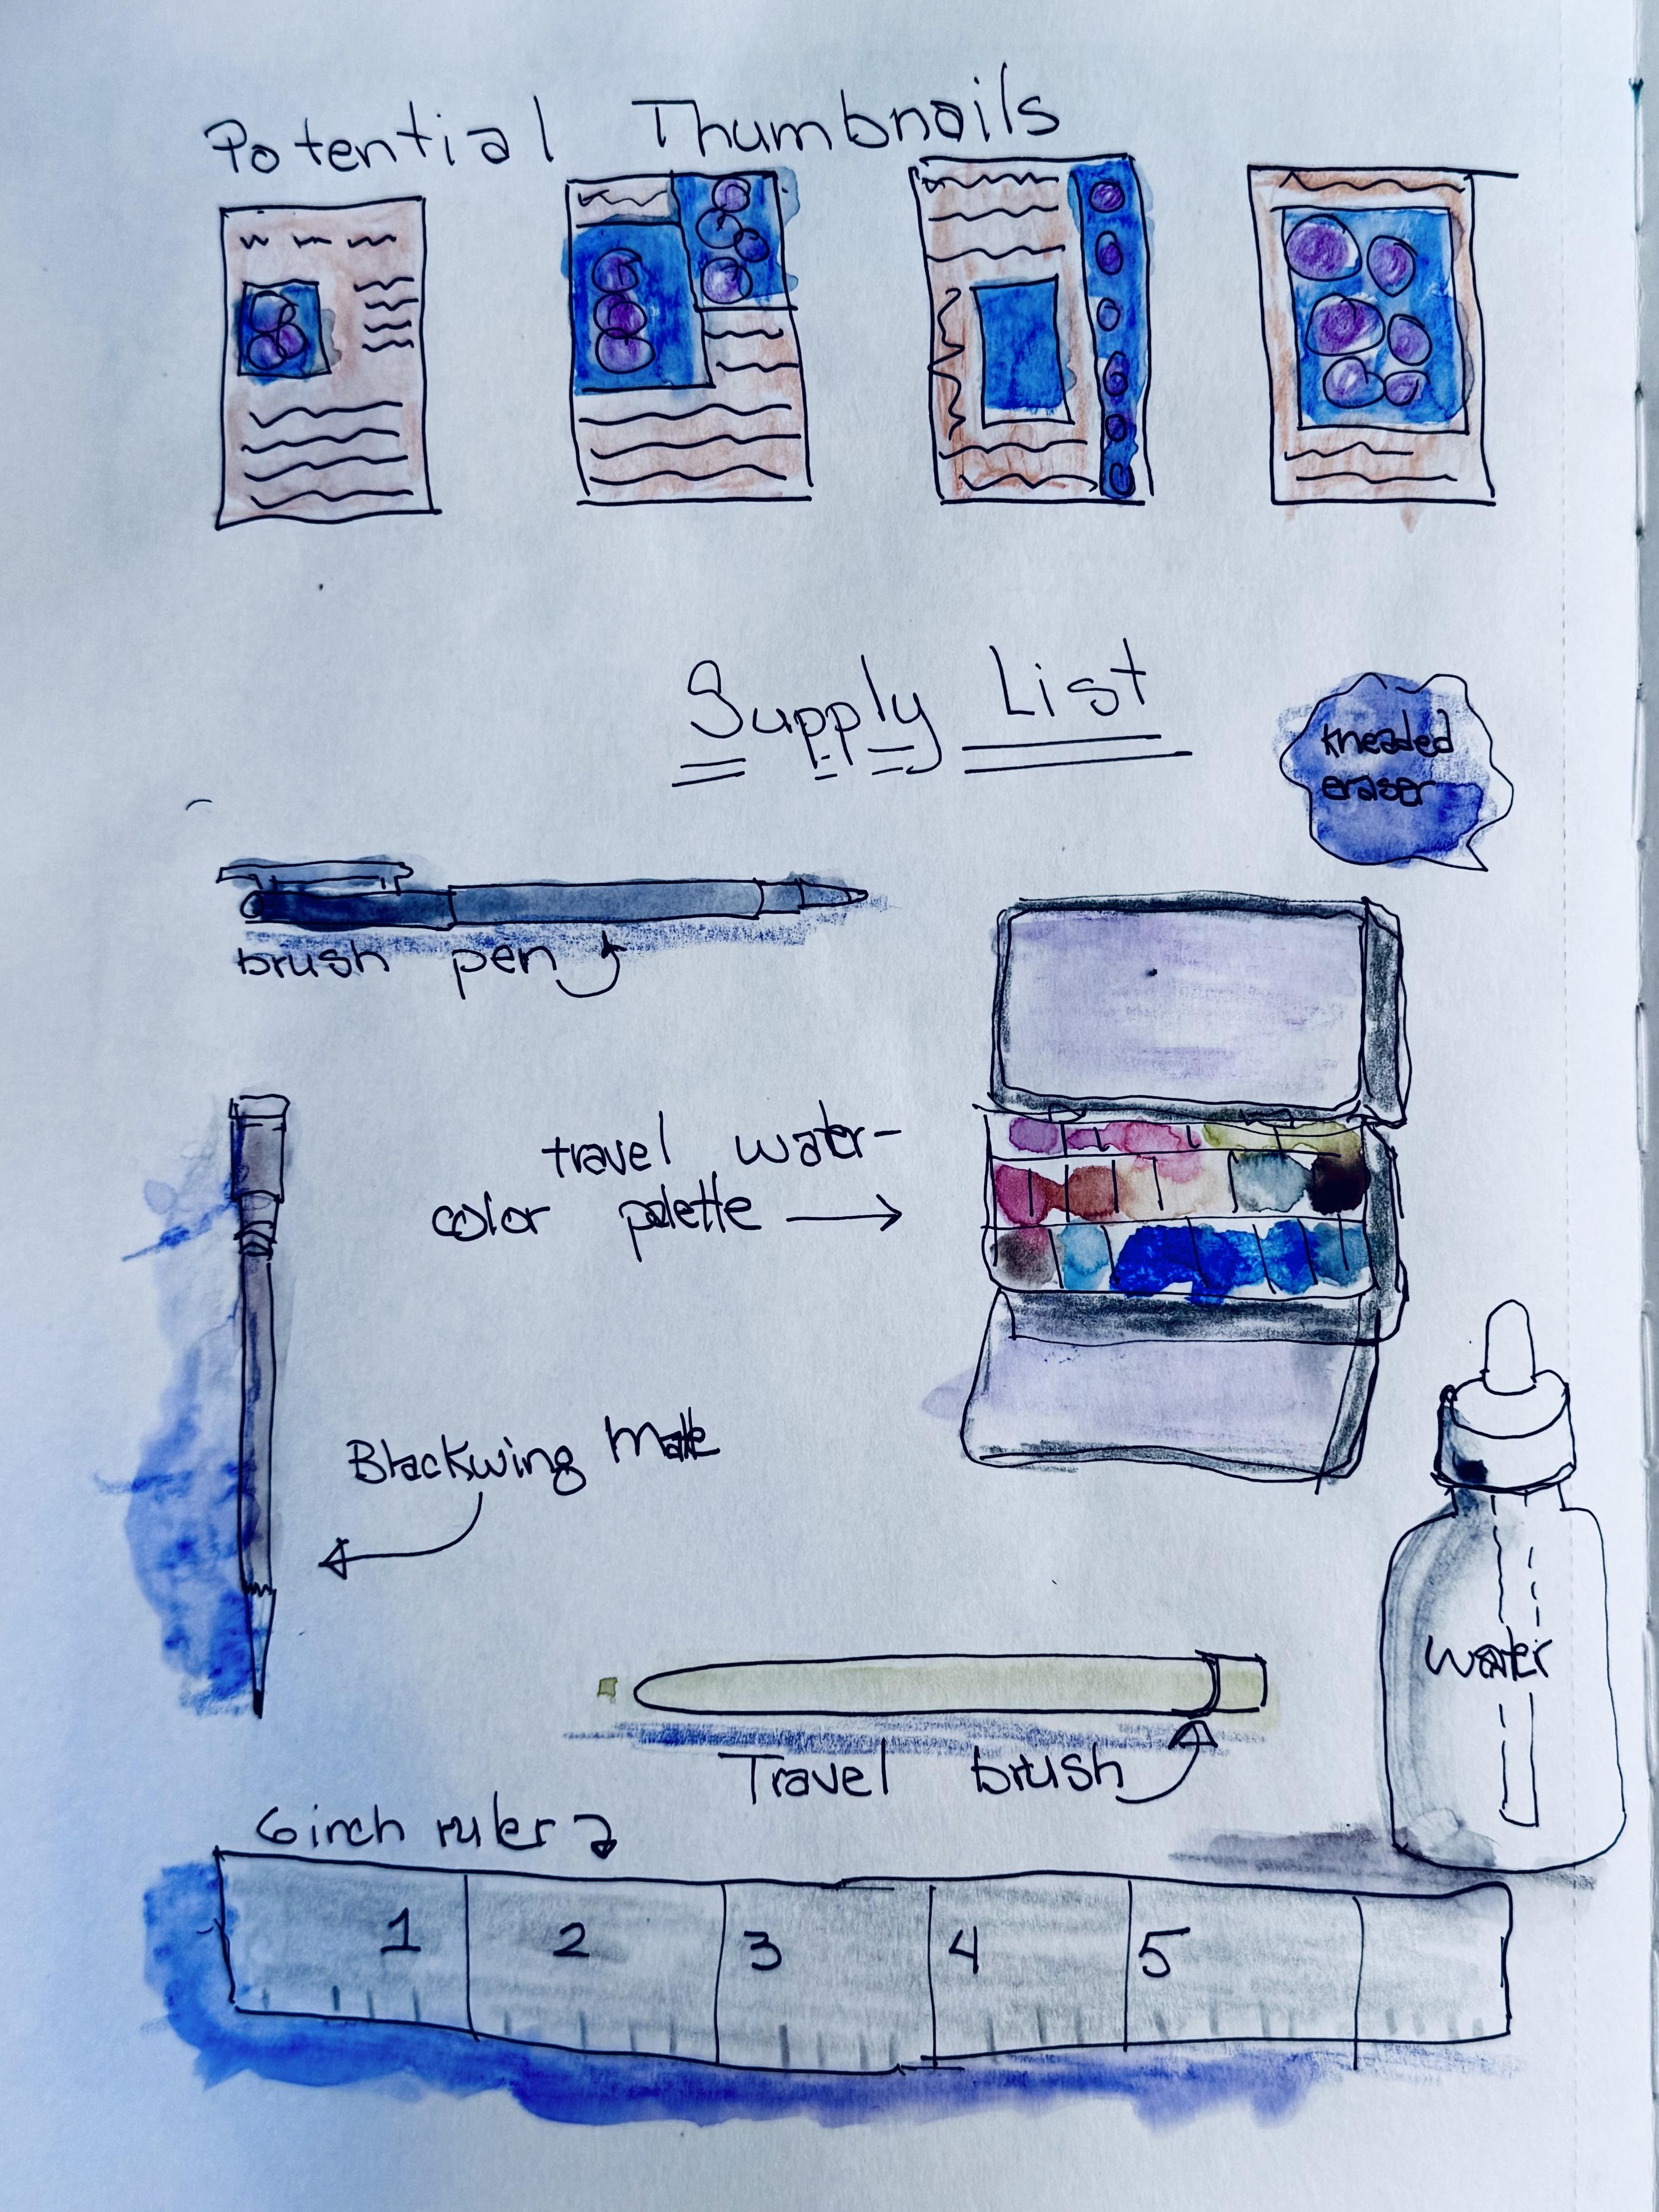 Potential Thumbnails
Supply List
kneaded
eraser
brush pen
travel water-
color palette
Blackwing Matte
water
Travel brush
6 inch ruler
1 2 3 4 5